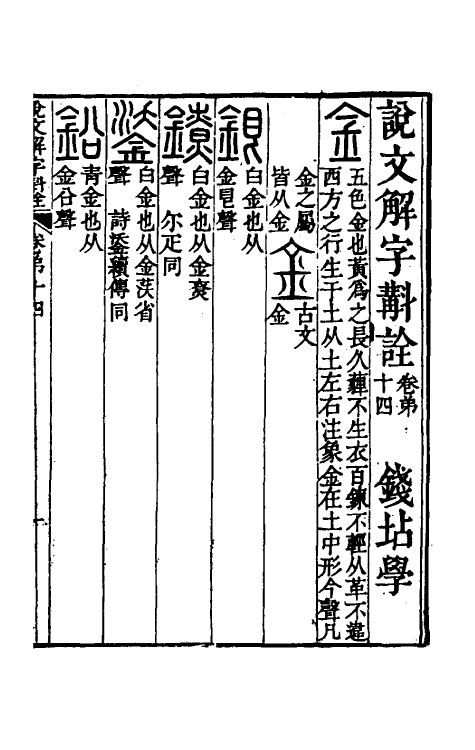 說文解字斠詮 卷弟十四 錢坫學
金 五色金也黃爲之長久薶不生衣百鍊不輕从革不違
西方之行生于土从土左右注象金在土中形今聲凡
金之屬
皆从金 金 古文
金
銀 白金也从
金㫐聲
鐐 白金也从金尞
聲 尔疋同
鋈 白金也从金茨省
聲 詩鋈䥴傳同
鉛 青金也从
金㕣聲
說文解字斠詮 卷弟十四 一